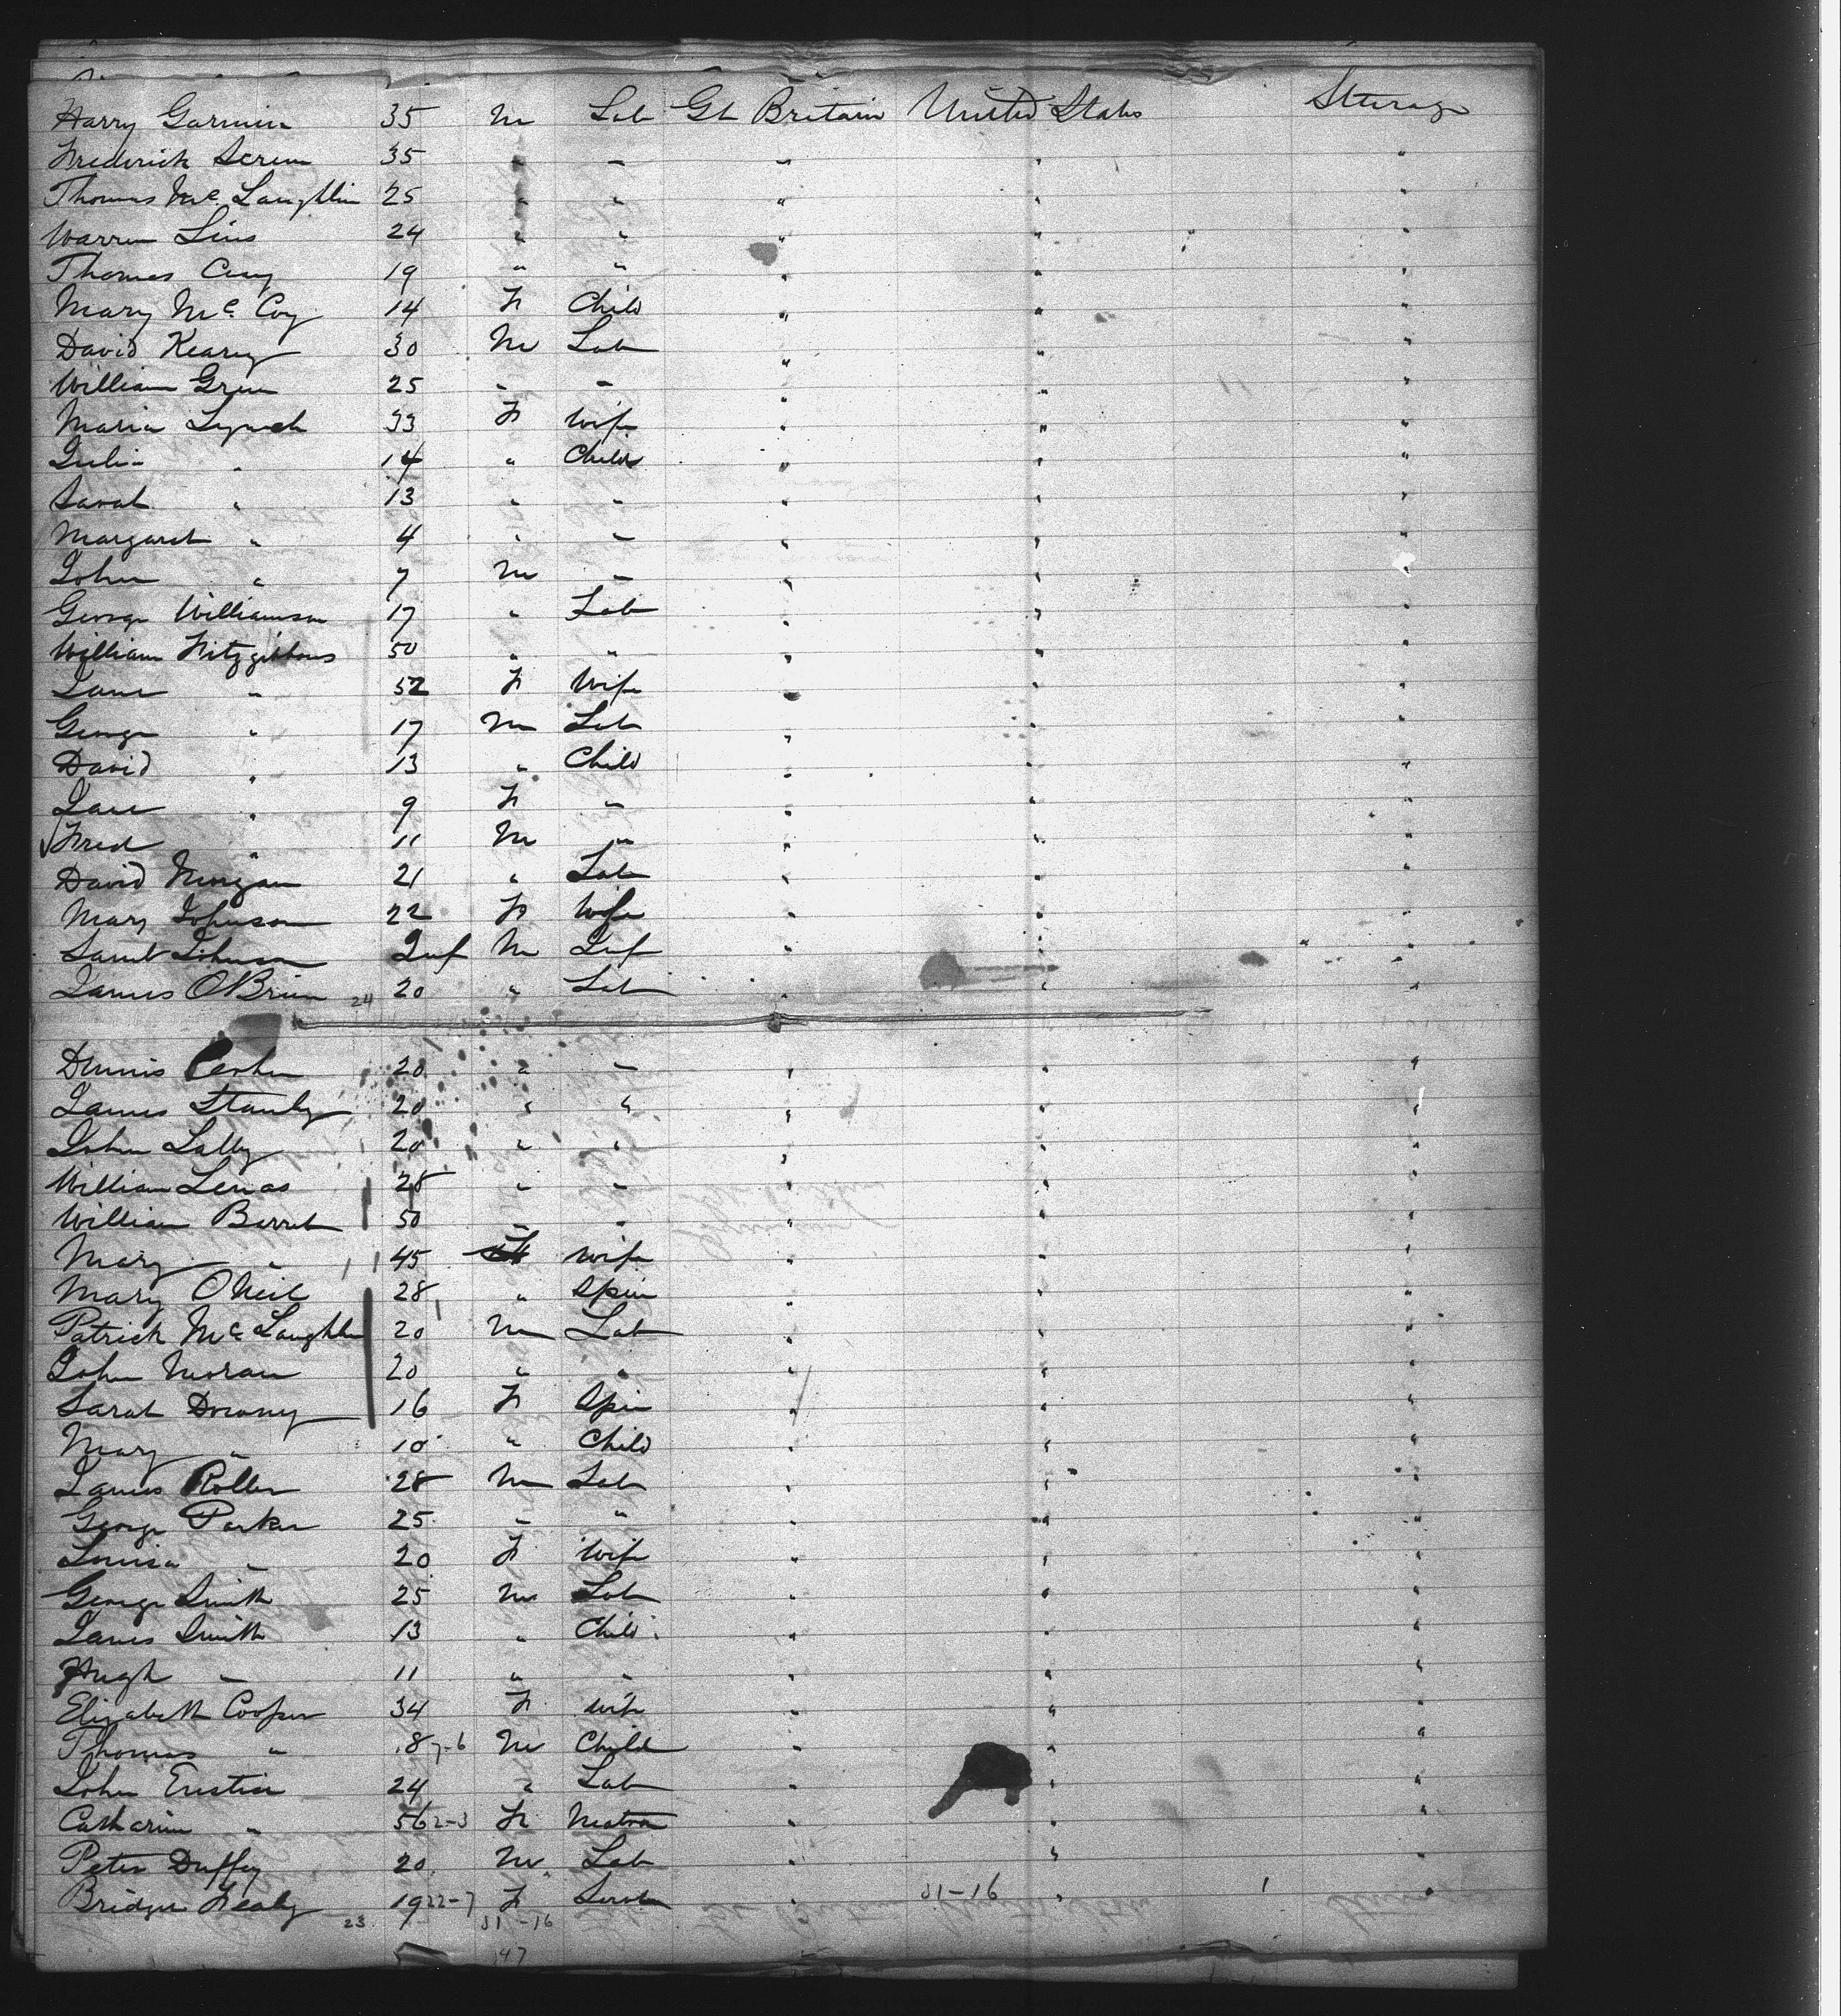 Harry Garmin 35 M Lab Gt Britain United States Steerage
Frederick Screen 35 " " " " "
Thomas Mc Laughlin 25 " " " " "
Warren 24 " " " " "
Thomas 19 " " " " "
Mary Mc Coy 14 F Child " " "
David Keary 30 M Lab " " "
William Green 25 " " " " "
Maria Lynch 33 F Wife " " "
Julia " 14 " Child " " "
Sarah " 13 " " " " "
Margaret " 4 " " " " "
John " 7 M " " " "
George Williamson 17 " Lab " " "
William Fitzgibbons 50 " " " " "
Jane " 52 F Wife " " "
George " 17 M Lab " " "
David " 13 " Child " " "
Jane " 9 F " " " "
Fred " 11 M " " " "
David Morgan 21 " Lab " " "
Mary Johnson 22 F Wife " " "
Saml Johnson Inf M Inf " " "
James OBrien 24 20 " Lab " " "
Dennis 20 " " " " "
James Stanley 20 " " " " "
John Lally 20 " " " " "
William 28 " " " " "
William Barrett 50 " " " " "
Mary " 45 F Wife " " "
Mary ONeil 28 " Spin " " "
Patrick Mc Laughlin 20 M Lab " " "
John Moran 20 " " " " "
Sarah Downey 16 F Spin " " "
Mary " 10 " Child " " "
James Roller 28 M Lab " " "
George Parker 25 " " " " "
Louisa " 20 F Wife " " "
George Smith 25 M Lab " " "
James Smith 13 " Child " " "
Hugh " 11 " " " " "
Elizabeth Cooper 34 F Wife " " "
Thomas " 8 7-6 M Child " " "
John 24 " Lab " " "
Catharine " 56 2-3 F Matron " " "
Peter Duffey 20 M Lab " " "
Bridget Healy 23 19 22-7 F " 31-16 " 1 "
31-16
47